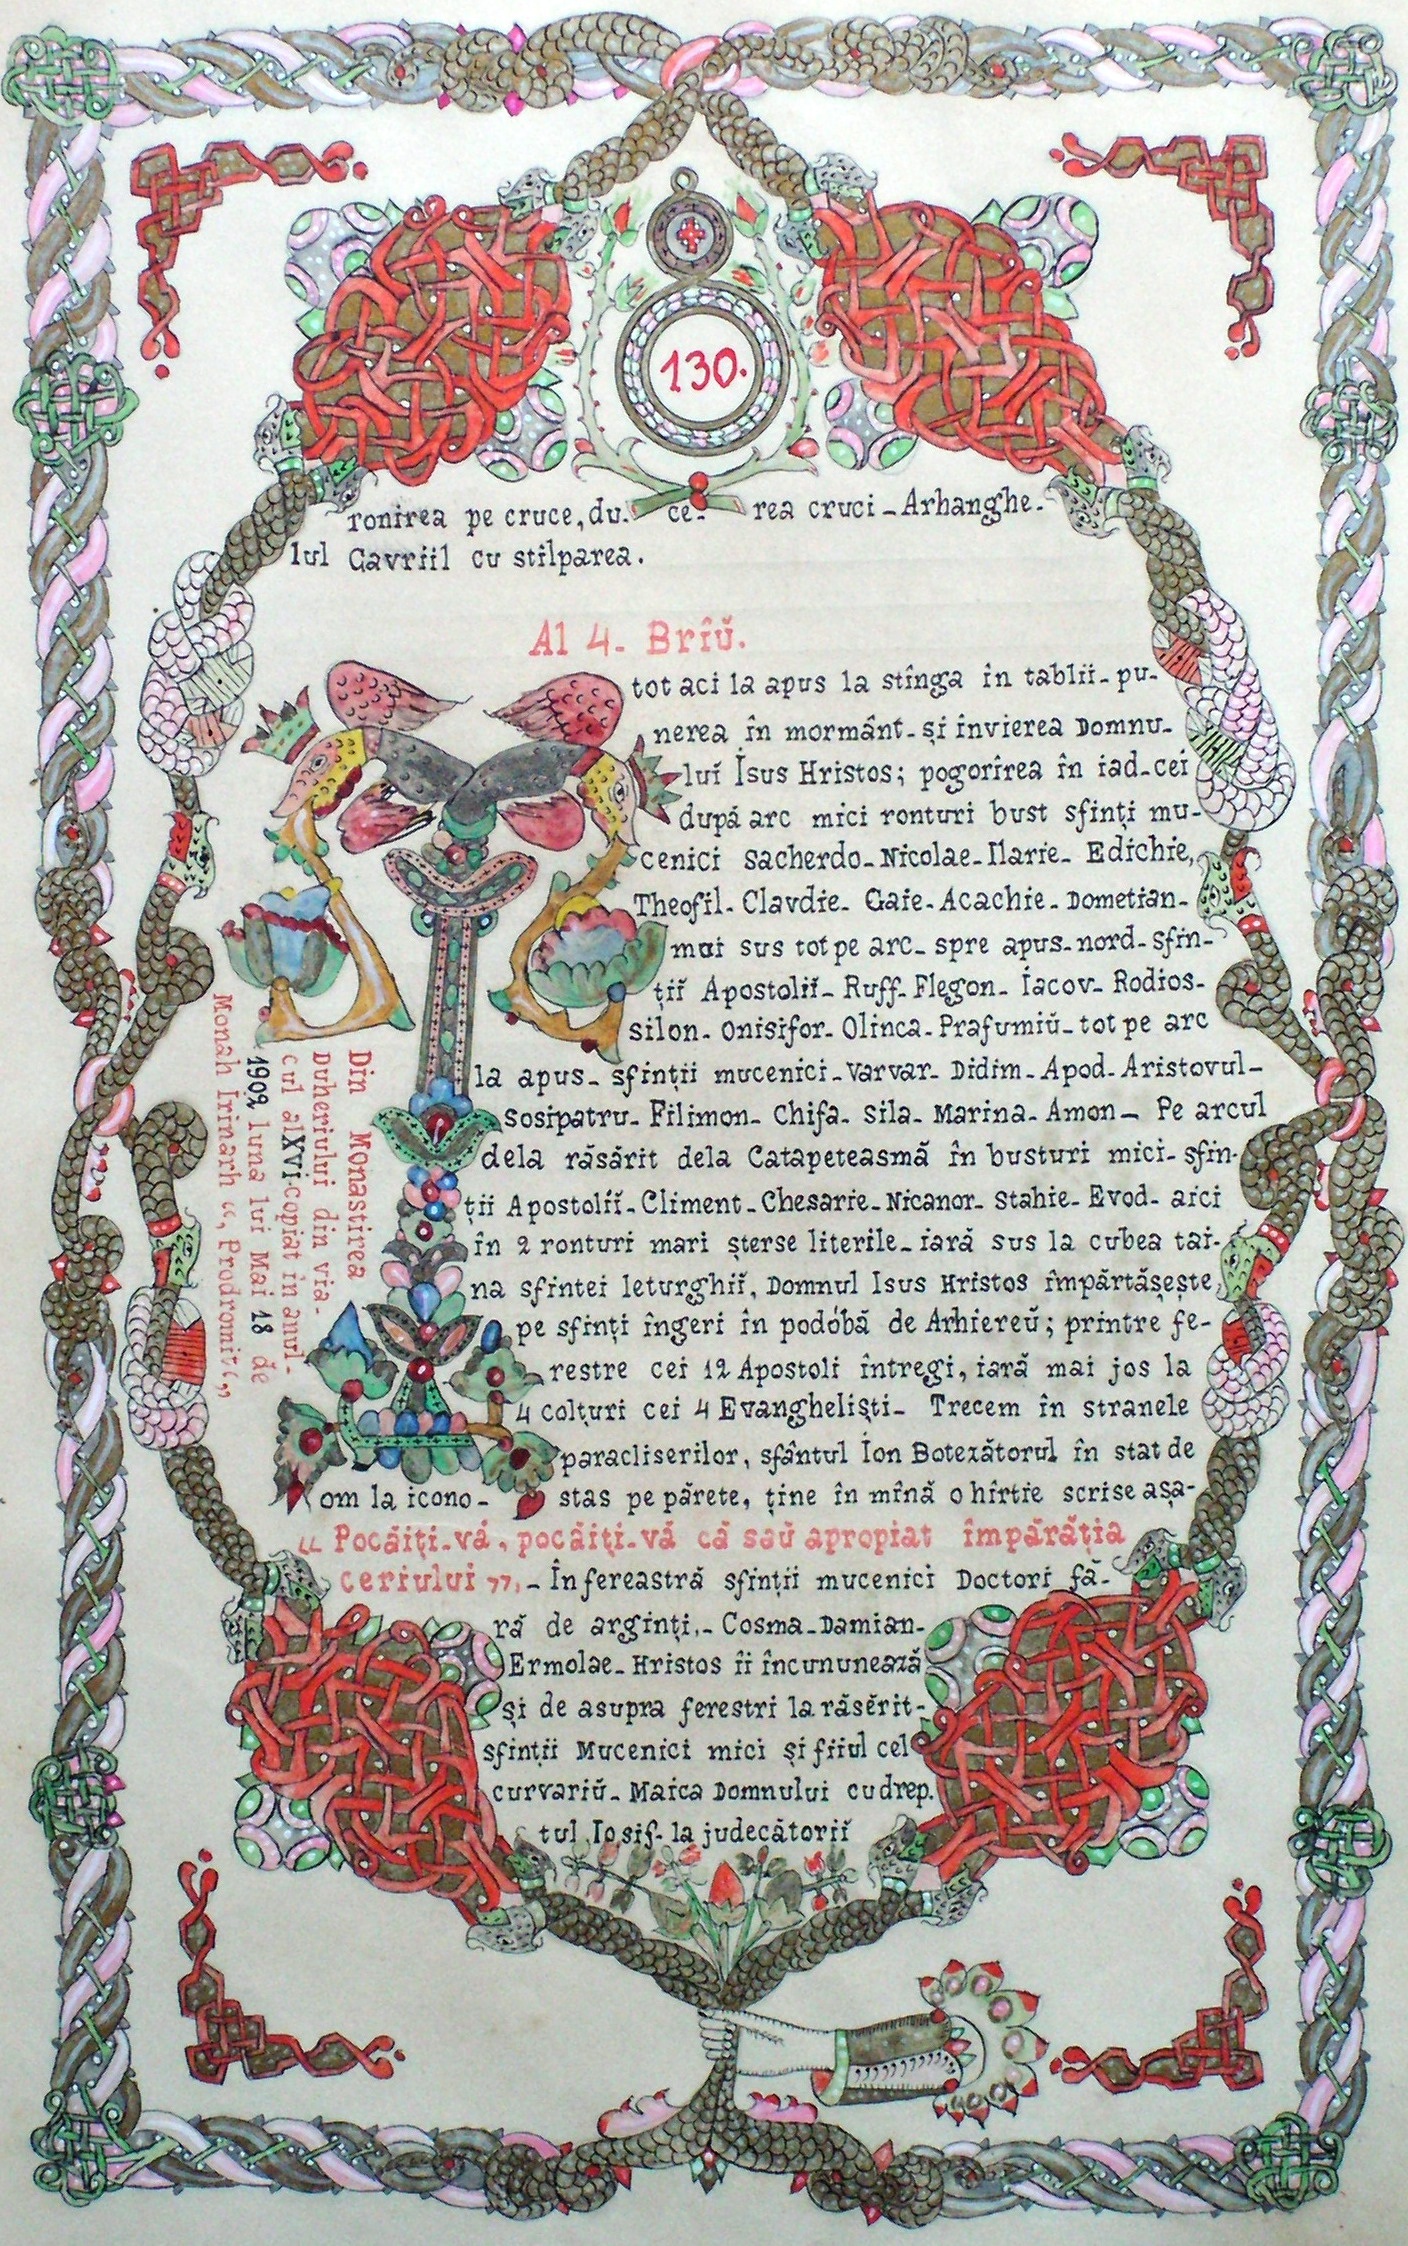 130.
ronirea pe cruce, du. ce. rea cruci - Arhanghe.
lul Gavriil cu stilparea.
Al 4. Brîŭ.
tot aci la apus la stînga în tablii - pu-
nerea în mormânt - și învierea Domnu-
luĭ Isus Hristos; pogorîrea în iad - cei
după arc mici ronturi bust sfinți mu-
cenici Sacherdo - Nicolae - Ilarie - Edichie,
Theofil - Clavdie - Gaie - Acachie - Dometian -
mai sus tot pe arc - spre apus - nord - sfin-
țiĭ Apostoliĭ - Ruff - Flegon - Iacov - Rodios -
silon - Onisifor - Olinca - Prafumiŭ - tot pe arc
la apus - sfinții mucenici - Varvar - Didim - Apod - Aristovul -
Sosipatru - Filimon - Chifa - Sila - Marina - Amon - Pe arcul
dela răsărit dela Catapeteasmă în busturi mici - sfin-
ții Apostolii - Climent - Chesarie - Nicanor - Stahie - Evod - aici
în 2 ronturi mari șterse literile - iară sus la cubea tai-
na sfintei leturghiĭ, Domnul Isus Hristos împărtășește
pe sfinți îngeri în podóbă de Arhiereŭ; printre fe-
restre cei 12 Apostoli întregi, iară mai jos la
4 colțuri cei 4 Evangheliști - Trecem în stranele
paracliserilor, sfântul Ion Botezătorul în stat de
om la icono- stas pe părete, ține în mînă o hîrtie scrise așa-
„ Pocăiți-vă, pocăiți-vă că saŭ apropiat împărăția
ceriului ”, - În fereastră sfinții mucenici Doctori fă-
ră de arginți. - Cosma - Damian -
Ermolae - Hristos îi încununează
și de asupra ferestri la răsĕrit -
sfinții Mucenici mici și fiiul cel
curvariŭ - Maica Domnului cu drep.
tul Iosif - la judecătoriĭ
Din Monastirea
Duheriului din via-
cul al XVI. copiat în anul-
1909 luna lui Mai 18 de
Monah Irinarh „ Prodromit „